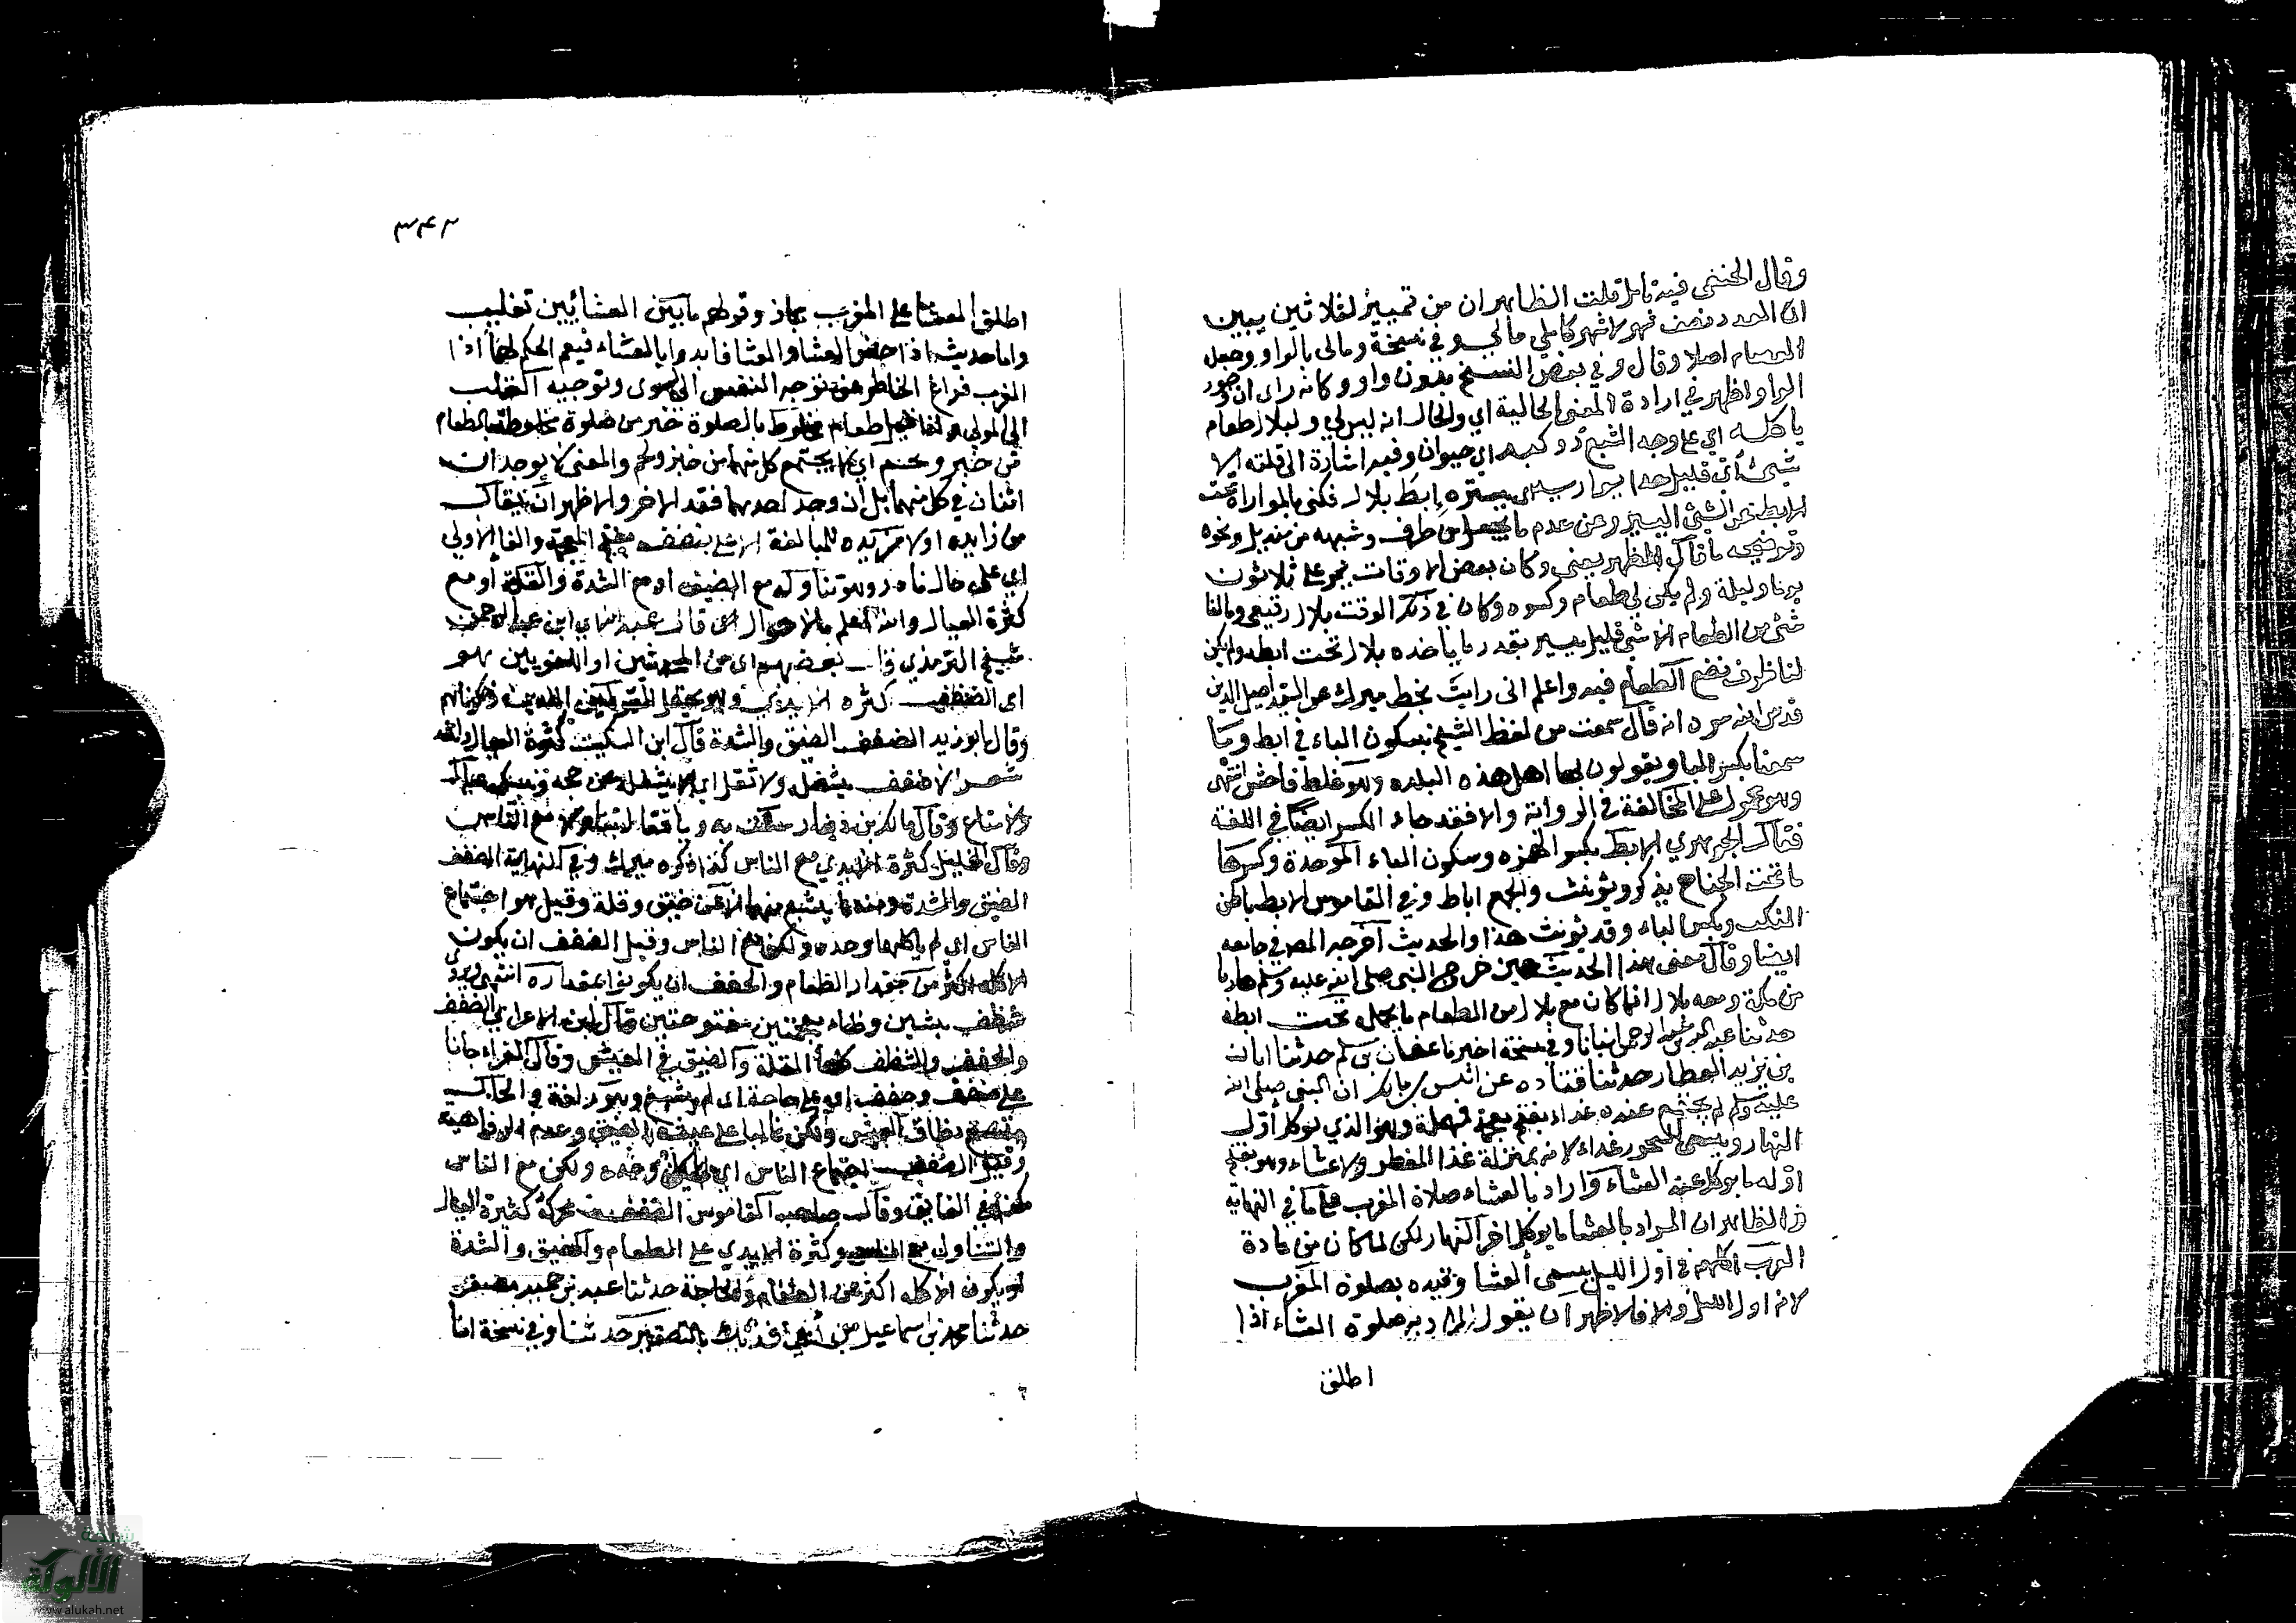 وقال الحنفي فيه تأمل قلت الظاهر ان من تمييز لثلاثين يبين
ان العدد نصف شهر لا شهر كاملي مالي و في نسخة ومالي بالواو وجعل
العصام اصلا وقال و في بعض النسخ بدون واو وكانه راى ان وجود
الواو اظهر في ارادة المعنى الحالية اي والحال انه ليس لي ولبلال طعام
ياكله اي على وجه الشبع ذو كبد اي حيوان وفيه اشارة الى قلته الا
شيئ اي قليل جدا يواريه اي يستره ابط بلال فكنى بالمواراة تحت
الابط عن الشئ اليسير وعن عدم ما يجعل من ظرف وشبهه من منديل ونحوه
وتوضيحه ما قال المظهر يعني وكان بعض الاوقات يمر على ثلاثون
يوما وليلة ولم يكن لي طعام وكسوه وكان في ذلك الوقت بلال رفيقي ومالنا
شئ من الطعام الا شئ قليل يسير بقدر ما ياخذه بلال تحت ابطه ولم يكن
لنا ظرف نضع الطعام فيه واعلم انى رايت بخط ميرك عن السيد اصيل الدين
قدس الله سره انه قال سمعت من لفظ الشيخ بسكون الباء في ابط
سمعنا بكسر الباء ويقولون بها اهل هذه البلده وهو غلط فاحش انتهى
وهو محمول على المخالفة في الرواية والا فقد جاء الكسر ايضا في اللغة
فقال الجوهري الابط بكسر الهمزه وسكون الباء الموحدة وكسرها
ما تحت الجناح يذكر ويؤنث والجمع اباط و في القاموس الابط باطن
المنكب وبكسر الباء وقد يؤنث هذا والحديث اخرجه المص في جامعه
ايضا وقال معنى هذا الحديث حين خرج النبي صلى الله عليه وسلم هاربا
من مكة ومعه بلال انما كان مع بلال من الطعام ما يحمله تحت ابطه
حدثنا عبد الله بن عبد الرحمن انبانا و في نسخة اخبرنا عفان بن مسلم حدثنا ابان
بن يزيد العطار حدثنا قتاده عن انس بن مالك ان النبي صلى الله
عليه وسلم لم يجتمع عنده غداء بفتح معجمة فمهملة وهو الذي يوكل اول
النهار ويسمى السحور غداء لانه بمنزلة غذا المفطر ولا عشاء وهو بفتح
اوله ما يوكل عند العشاء واراد بالعشاء صلاة المغرب على ما في النهاية
والظاهر ان المراد بالعشا ما يوكل اخر النهار لكن لما كان من عادة
العرب اكلهم في اول الليل يسمى العشا وقيده بصلوة المغرب
لانه اول الليل والا فالاظهر ان يقول المراد به صلوة العشاء اذا
اطلق
٣٤٢
اطلق العشا على المغرب مجاز وقولهم ما بين العشائين تغليب
واما حديث اذا حضر العشا والعشا فابدوا بالعشاء فيعم الحكم لهما اذا
المغرب فراغ الخاطر عن توجه النفس الى السوى وتوجيه القلب
الى المولى ولذا قيل طعام مخلوط بالصلوة خير من صلوة مخلوطة بالطعام
من خبز و لحم اي لا يجتمع كل منهما من خبز ولحم والمعنى لا يوجدان
اثنان في كل منهما بل ان وجد احدهما فقد الاخر والاظهر ان يقال
من زايده اولا مزيده للمبالغة الا على ضفف بفتح المعجمة والفا الاولى
اي على حال نادر وهو تناوله مع الضيف او مع الشدة والقلة او مع
كثرة العيال والله اعلم بالاحوال قال عبد الله اي ابن عبد الرحمن
شيخ الترمذي قال بعضهم اي من المحدثين او اللغويين هو
اى الضفف كثره الايدي
وقال ابو زيد الضفف الضيق والشدة قال ابن السكيت كثرة العيال وانشد
شعر لا ضفف يشغله ولا ثقل اي لا يشغله عن حجه ونسكه عيال
ولا متاع وقال مالك بن دينار
وقال الخليل كثرة الايدي مع الناس كذا ذكره ميرك وفي النهاية الضفف
الضيق والشدة ومنه ما يشبع منهما الا عن ضيق وقلة وقيل هو اجتماع
الناس اي لم ياكلهما وحده ولكن مع الناس وقيل الضفف ان يكون
الاكلة اكثر من مقدار الطعام والحفف ان يكونوا بمقداره انتهى ويروى
شظف بشين وظاء معجمتين مفتوحتين قال ابن الاعرابي الضفف
والحفف والشظف كلها القلة والضيق في العيش وقال الفراء جانا
على ضفف وحفف اي على حاجة اي لم يشبع وهو رافة و الحال
وقيل الضفف اجتماع الناس اي لم ياكل وحده ولكن مع الناس
كذا في الفايق وقال صاحب القاموس الضفف محركة كثرة العيال
والتناول مع الناس وكثرة الايدي على الطعام والضيق والشدة
او يكون الاكلة اكثر من الطعام والحاجة حدثنا عبد بن حميد
حدثنا محمد بن اسماعيل بن أبي فديك بالتصغير حدثنا و في نسخة انا
شبكة
الألوكة
www.alukah.net